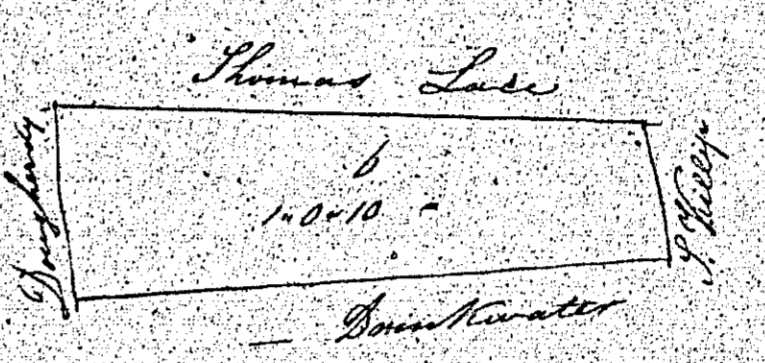 Thomas Lace
Dougherty
6
1 " 0 " 10
J. Killip
Drinkwater